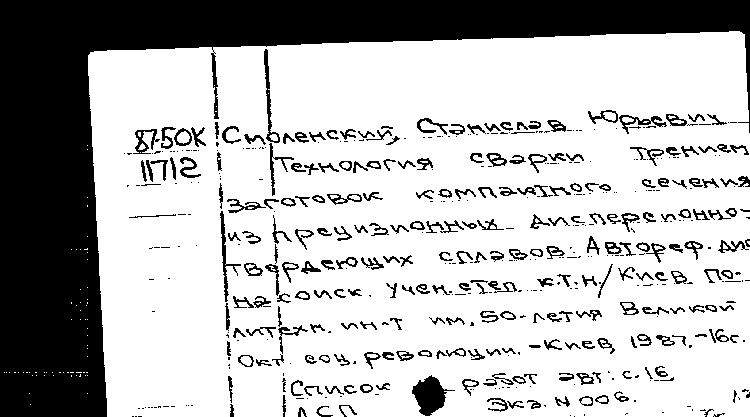 87-50К Смоленский, Станислав Юрьевич
11712 Технология сварки трением
заготовок компактного сечения
из прецизионных дисперсионно-
твердеющих сплавов: Автореф. дис
на соиск. учен. степ. к.т.н./Киев. по-
литехн. ин-т им. 50-летия Великой
Окт. соц. революции. -Киев, 1987.-16с.
Список работ авт: с. 16
ДСП Экз. N 006.